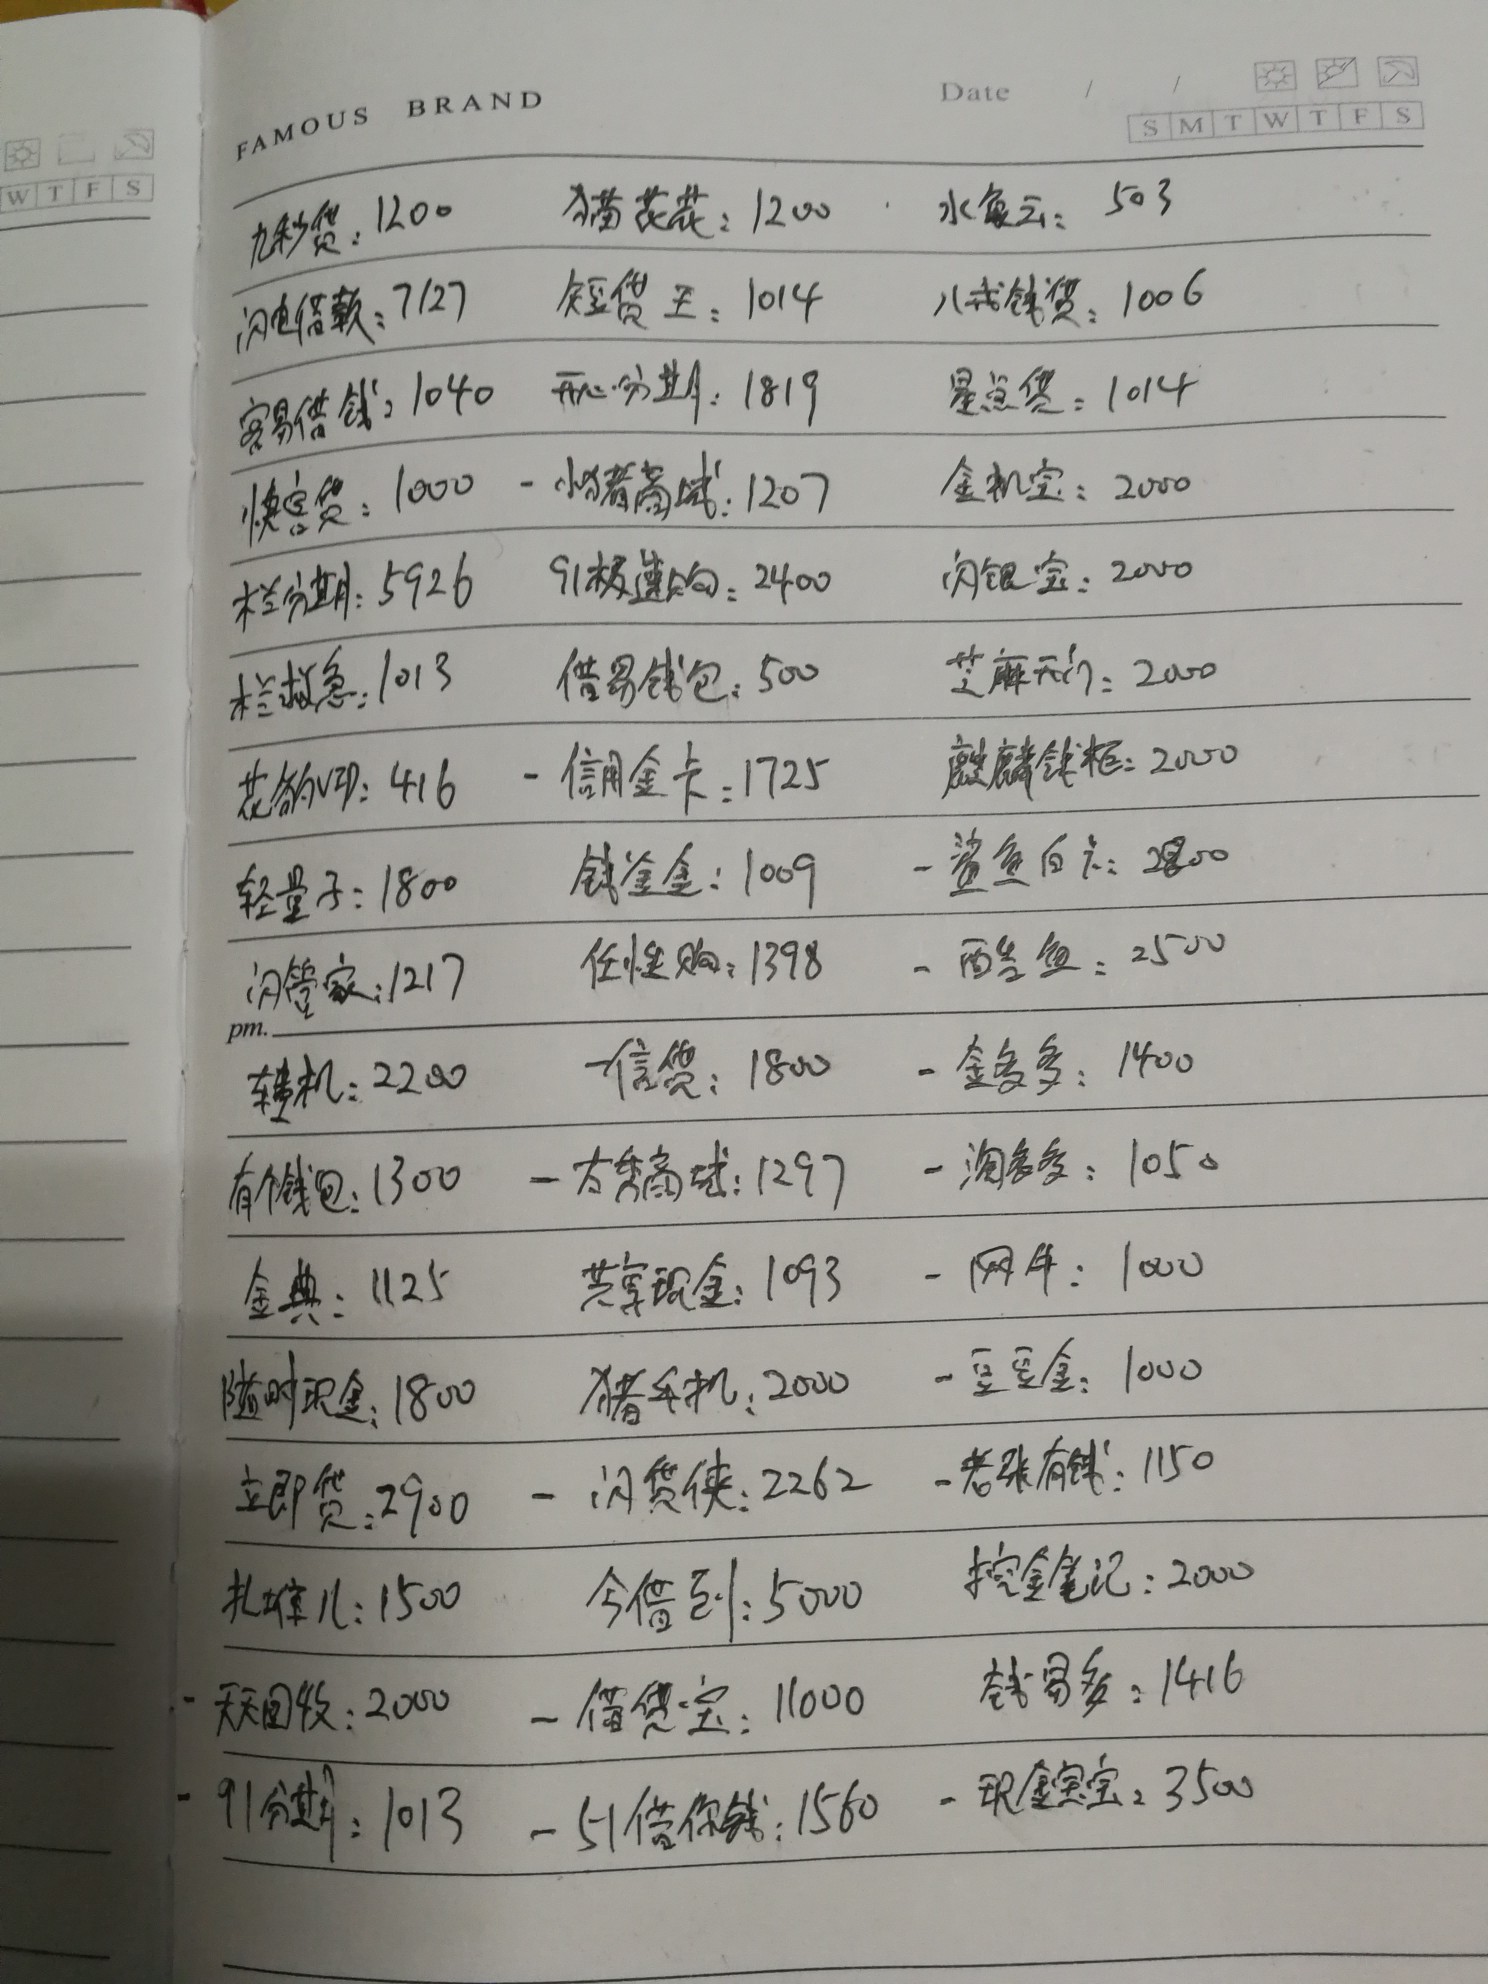 FAMOUS BRAND Date / /
S M T W T F S
W T F S
九秒贷：1200 猫花花：1200 水象云：503
闪电借款：7127 短贷王：1014 八戒钱贷：1006
容易借钱：1040 开心分期：1819 星点贷：1014
快客贷：1000 - 小猪商城：1207 金机宝：2000
栏分期：5926 91极速购：2400 闪银宝：2000
栏救急：1013 借易钱包：500 芝麻开门：2000
花豹VIP：416 - 信用金卡：1725 麒麟钱柜：2000
轻量子：1800 钱釜金：1009 - 鲨鱼白卡：2800
闪管家：1217 任性购：1398 - 酷鱼：2500
pm.
转机：2200 一信贷：1800 - 金多多：1400
有个钱包：1300 - 古秀商城：1297 - 淘多多：1050
金典：1125 共享现金：1093 - 网牛：1000
随时现金：1800 猪手机：2000 - 豆豆金：1000
立即贷：2900 - 闪贷侠：2262 - 老张有钱：1150
扎堆儿：1500 今借到：5000 挖金笔记：2000
- 天天回收：2000 - 借贷宝：11000 钱易多：1416
- 91分期：1013 - 51借你钱：1560 - 现金宝宝：3500